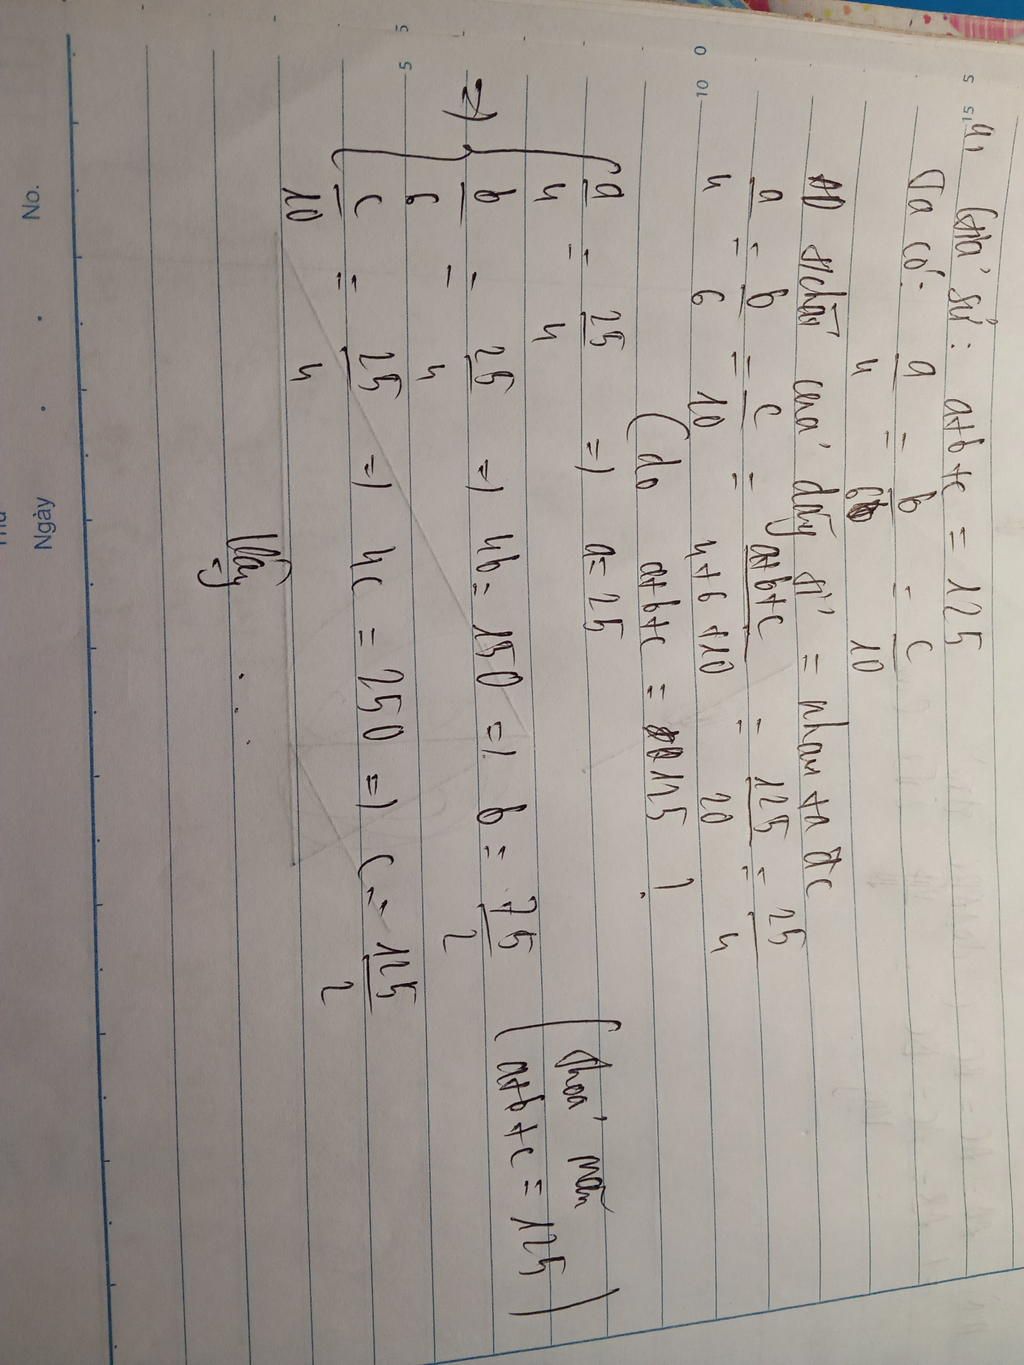 4, Giả sử : a+b+c = 125
Ta có : a/4 = b/6 = c/10
AD t/chất của dãy tỉ = nhau ta đc
a/4 = b/6 = c/10 = a+b+c/4+6+10 = 125/20 = 25/4
(do a+b+c = 125).
=> { a/4 = 25/4 => a = 25
b/6 = 25/4 => 4b = 150 => b = 75/2
c/10 = 25/4 => 4c = 250 => c = 125/2
(Thoả mãn
a+b+c = 125)
Vậy . . .
No.
Ngày . .
5
15
0
10
5
5